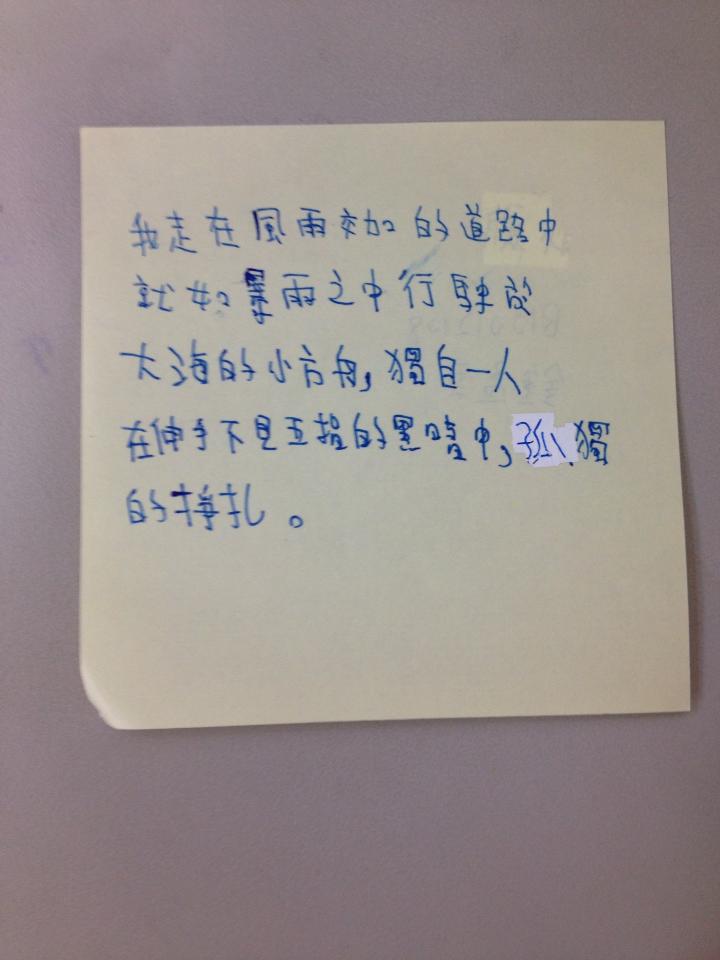 我走在風雨交加的道路中
就如暴雨之中行駛於
大海的小方舟，獨自一人
在伸手不見五指的黑暗中，孤獨
的掙扎。